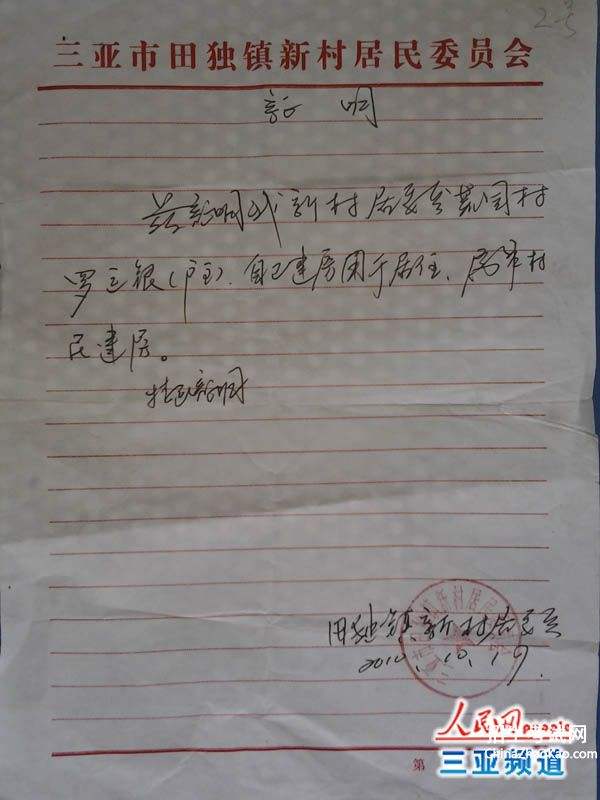 2号
三亚市田独镇新村居民委员会
证 明
兹证明我新村居委会荔园村
罗亚银(户主)、自己建房用于居住、属本村
民建居。
特此证明
田独镇新村居委会
2010.10.19.
人民网 people
招中考试网
ChinaZhaoKao.com
三亚频道
第